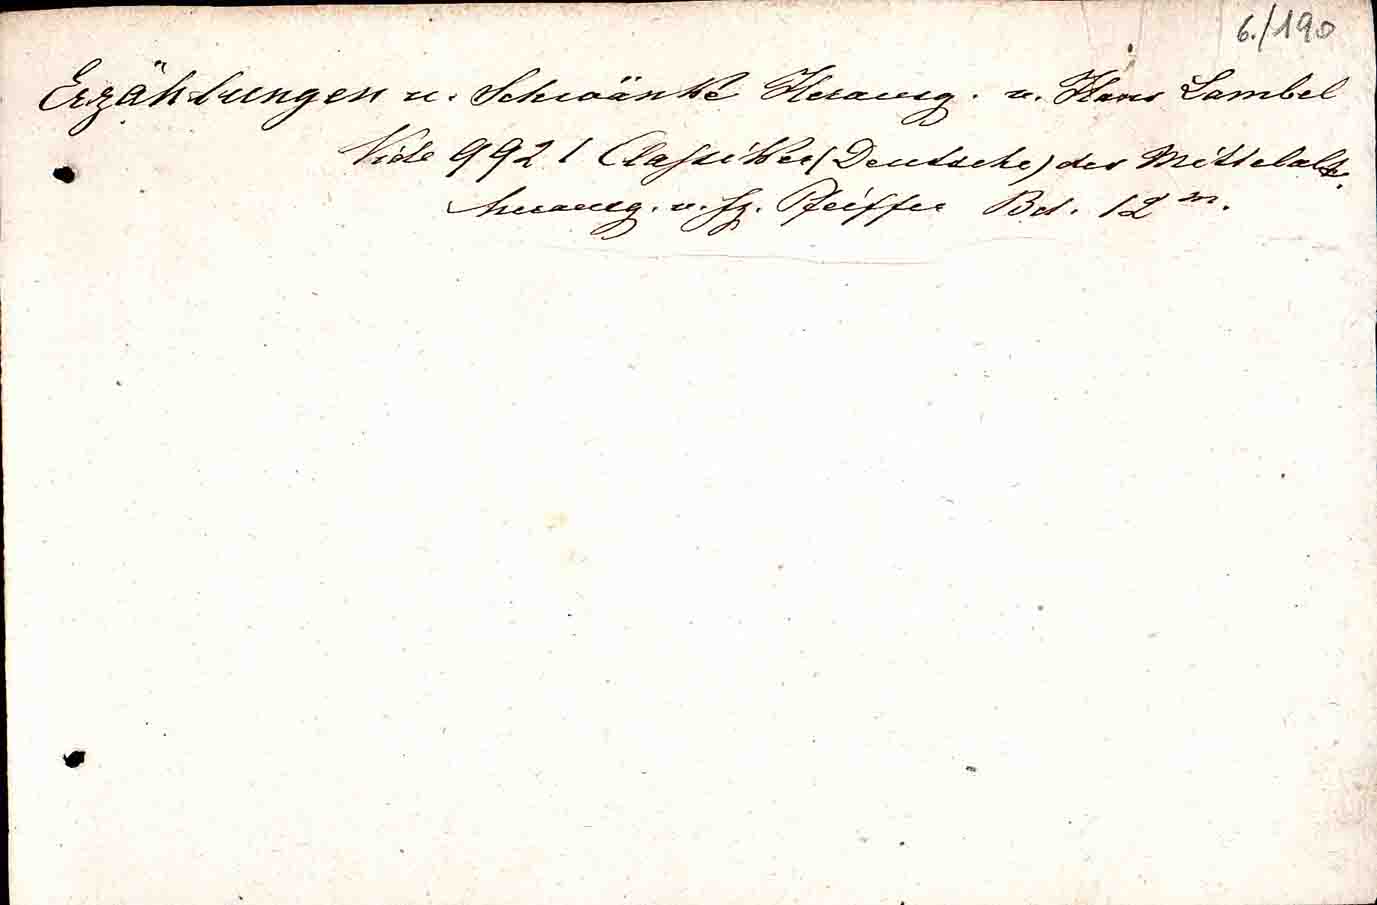 6./190
Erzählungen u. Schwänke Herausg. v. Hans Lambel
Vide 9921 Classiker (Deutsche) des Mittelalt.
herausg. v. Fz. Pfeiffer Bd. 12